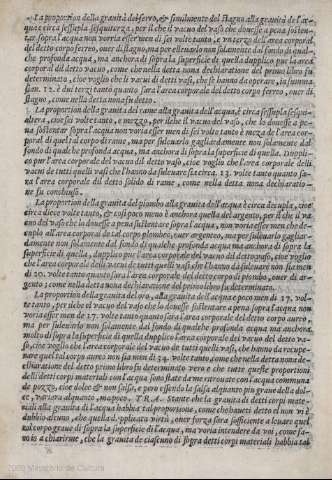 La proportion della gravità del ferro, & similmente del stagno alla gravità de l'ac-
qua è circa sessupla sesquitertia, per il che il vacuo del vaso che douesse a pena sosten-
tare sopra l'acqua non vorria esser men di sei volte tanto, e un terzo dell'area corporal
del detto corpo ferreo, ouer di stagno, ma per elleuarlo non solamente dal fondo di qual-
che profonda acqua, ma anchora di sopra la superficie di quella dupplico pur la area
corporal dil detto vacuo, come che nella detta nona dechiaratione del primo libro fu
determinato, cioe voglio che li vacui di detti vasi, che se hanno da operare, in summa
sian. 12. è dui terzi tanto quanto sara l'area corporale del detto corpo ferreo, ouer di
stagno, come nella detta nona fu detto.
La proportion della gravità del rame alla gravità dell'acqua, è circa sessupla sesqui-
altera, cioe sei volte tanto, e mezzo, per il che il vacuo del vaso, che lo douesse a pe-
na sostentar sopra l'acqua non voria esser men di sei volte tanto è meza de l'area cor-
poral di quel tal corpo di rame, ma per sulleuarlo gagliardamente non solamente dal
fondo di qualche profonda acqua, ma anchora di sopra la superficie di quella. Dupplico
pur l'area corporale del vacuo dil detto vaso, cioe voglio che l'area corporale delli
vacui de tutti quelli vasi che l'hanno da sulleuare sia circa. 13. volte tanto quanto sa-
ra l'area corporale dil detto solido di rame, come nella detta nona dechiaratio-
ne su concluso.
La proportion della gravità del piombo alla gravità dell'acqua è circa decupla, cioe
circa diece volte tanto, & cosi poco meno è anchora quella del argento, per il che il va-
cuo del vaso che lo douesse a pena sustentare sopra l'acqua, non voria esser men che de-
cuplo all'area corporale di tal corpo piombeo, ouer argenteo, ma per sulleuarlo gagliar-
damente non solamente dal fondo di qualche profonda acqua ma anchora di sopra la
superficie di quella, dupplico pur l'area corporale del vacuo del detto vaso, cioe voglio
che l'area corporale delli vacui de tutti quelli vasi che l'hanno da sulleuare non sia men
di 20. volte tanto quanto sara l'area corporale del detto corpo di piombo, ouer di ar-
gento; come nella detta nona dechiaratione del primo libro fu determinato.
La proportion della gravità del oro, alla gravità dell'acqua è poco men di 17. vol-
te tanto, per ilche el vacuo del vaso che lo douesse sostentare a pena sopra l'acqua non
voria esser men de 17. volte tanto quanto sara l'area corporale del detto corpo aureo,
ma per sulleuarlo non solamente dal fondo di qualche profonda acqua ma anchora
molto di sopra la superficie di quella dupplico l'area corporale del vacuo del detto va-
so, cioe voglio che l'area corporale del vacuo de tutti quelli vasi, che hanno da recupe-
rare quel tal corpo aureo non sia men di 34. volte tanto, come che nella detta nona de-
chiaratione del detto primo libro fu determinato vero è che tutte queste proportioni
delli detti corpi materiali con l'acqua sono state da me ritrouate con l'acqua commune
de pozzo, cioe dolce & non salsa, e pero essendo la salsa alquanto più graue della dol-
ce, variara alquanto, ma poco. TRA. Stante che la gravità di detti corpi mate-
riali alla gravità di l'acqua habbia tal proportione, come che haueti detto el non vi è
dubbio alcuno, che quella dupplicata virtù, ouer forza sara sofficiente a leuare quel
tal corpo graue di sopra la superficie di l'acqua, ma voria intendere da voi, come fa-
resti à chiarirme, che la gravità de ciascuno di sopra detti corpi materiali habbia tal
2009 Ministerio de Cultura